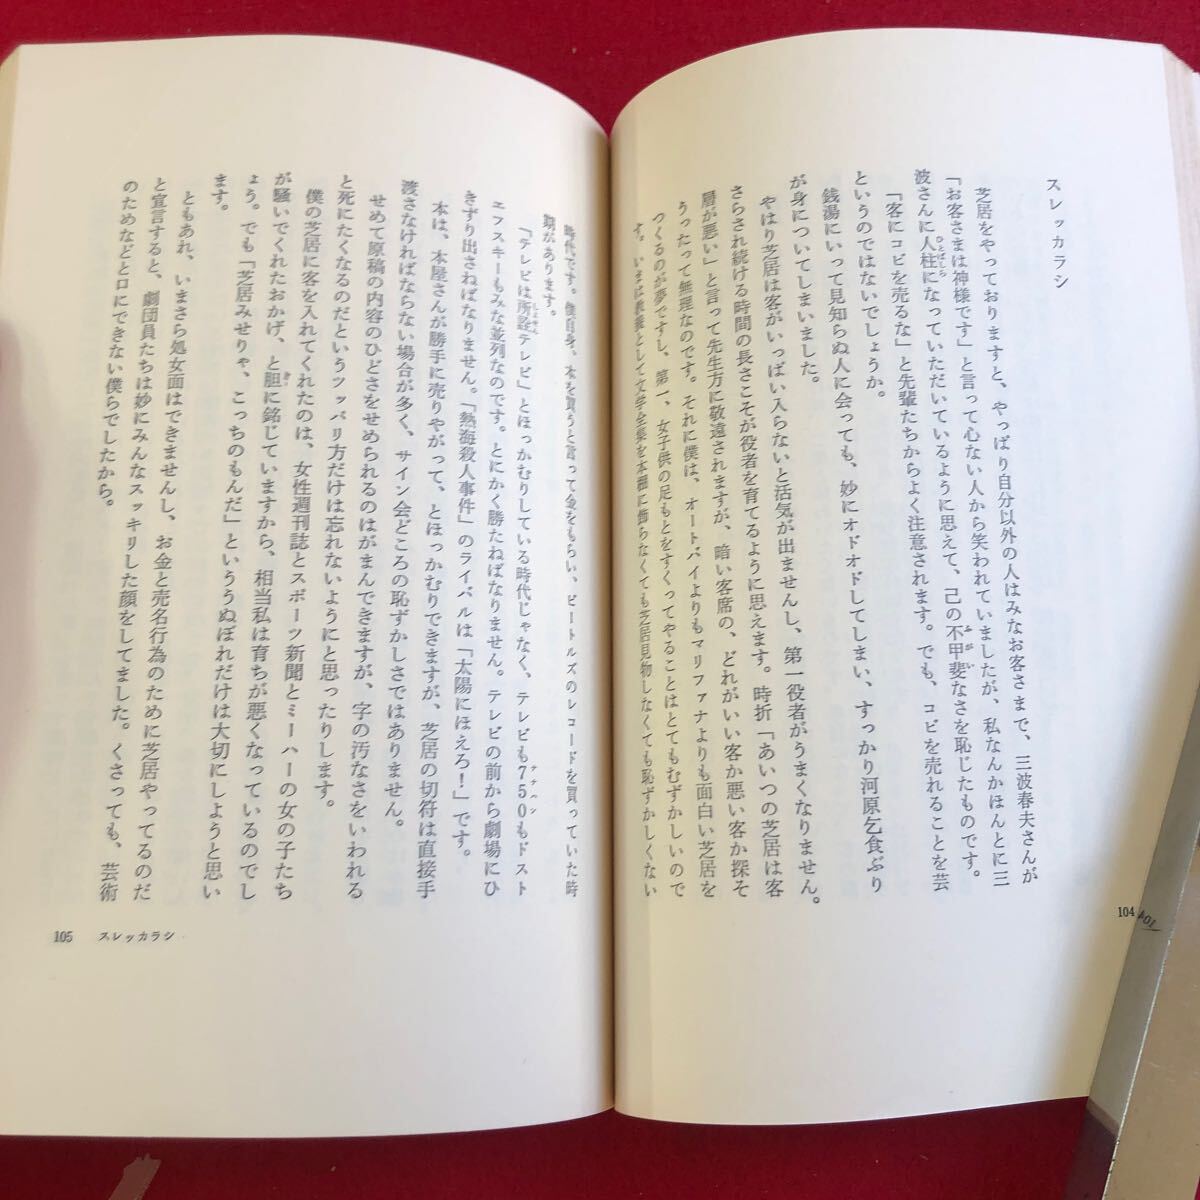 スレッカラシ
芝居をやっておりますと、やっぱり自分以外の人はみなお客さまで、三波春夫さんが
「お客さまは神様です」と言って心ない人から笑われていましたが、私なんかほんとに三
波さんに人柱になっていただいているように思えて、己の不甲斐なさを恥じたものです。
「客にコビを売るな」と先輩たちからよく注意されます。でも、コビを売れることを芸
というのではないでしょうか。
銭湯にいって見知らぬ人に会っても、妙にオドオドしてしまい、すっかり河原乞食ぶり
が身についてしまいました。
やはり芝居は客がいっぱい入らないと活気が出ませんし、第一役者がうまくなりません。
さらされ続ける時間の長さこそが役者を育てるように思えます。時折「あいつの芝居は客
層が悪い」と言って先生方に敬遠されますが、暗い客席の、どれがいい客か悪い客か探そ
うったって無理なのです。それに僕は、オートバイよりもマリファナよりも面白い芝居を
つくるのが夢ですし、第一、女子供の足もとをすくってやることはとてもむずかしいので
す。いまは教養として文学全集を本棚に飾らなくても芝居見物しなくても恥ずかしくない
104
時代です。僕自身、本を買うと言って金をもらい、ビートルズのレコードを買っていた時
期があります。
「テレビは所詮テレビ」とほっかむりしている時代じゃなく、テレビも750もドスト
エフスキーもみな並列なのです。とにかく勝たねばなりません。テレビの前から劇場にひ
きずり出さねばなりません。「熱海殺人事件」のライバルは「太陽にほえろ！」です。
本は、本屋さんが勝手に売りやがって、とほっかむりできますが、芝居の切符は直接手
渡さなければならない場合が多く、サイン会どころの恥ずかしさではありません。
せめて原稿の内容のひどさをせめられるのはがまんできますが、字の汚なさをいわれる
と死にたくなるのだというツッパリ方だけは忘れないようにと思ったりします。
僕の芝居に客を入れてくれたのは、女性週刊誌とスポーツ新聞とミーハーの女の子たち
が騒いでくれたおかげ、と胆に銘じていますから、相当私は育ちが悪くなっているのでし
ょう。でも「芝居みせりゃ、こっちのもんだ」といううぬぼれだけは大切にしようと思い
ます。
ともあれ、いまさら処女面はできませんし、お金と売名行為のために芝居やってるのだ
と宣言すると、劇団員たちは妙にみんなスッキリした顔をしてました。くさっても、芸術
のためなどと口にできない僕らでしたから。
105 スレッカラシ